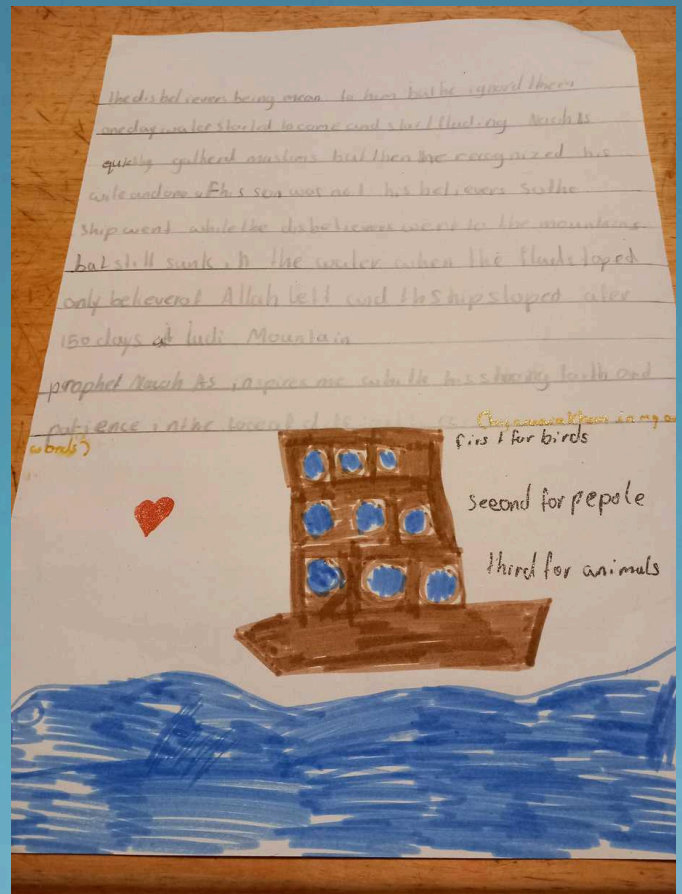 The disbelievers being mean to him but he ignord them
one day water started to come and start fluding Nuoh As
quickly gatherd muslims but then he recognized his
wife and one of his son was not his believers So the
ship went while the disbelievers went to the mountains
but still sunk in the water when the flud stoped
only believer of Allah left and the ship stoped after
150 days at Judi Mountain
prophet Nouoh As inspires me with his strong faith and
patience in the
in my o
words)
first for birds
second for pepole
third for animals